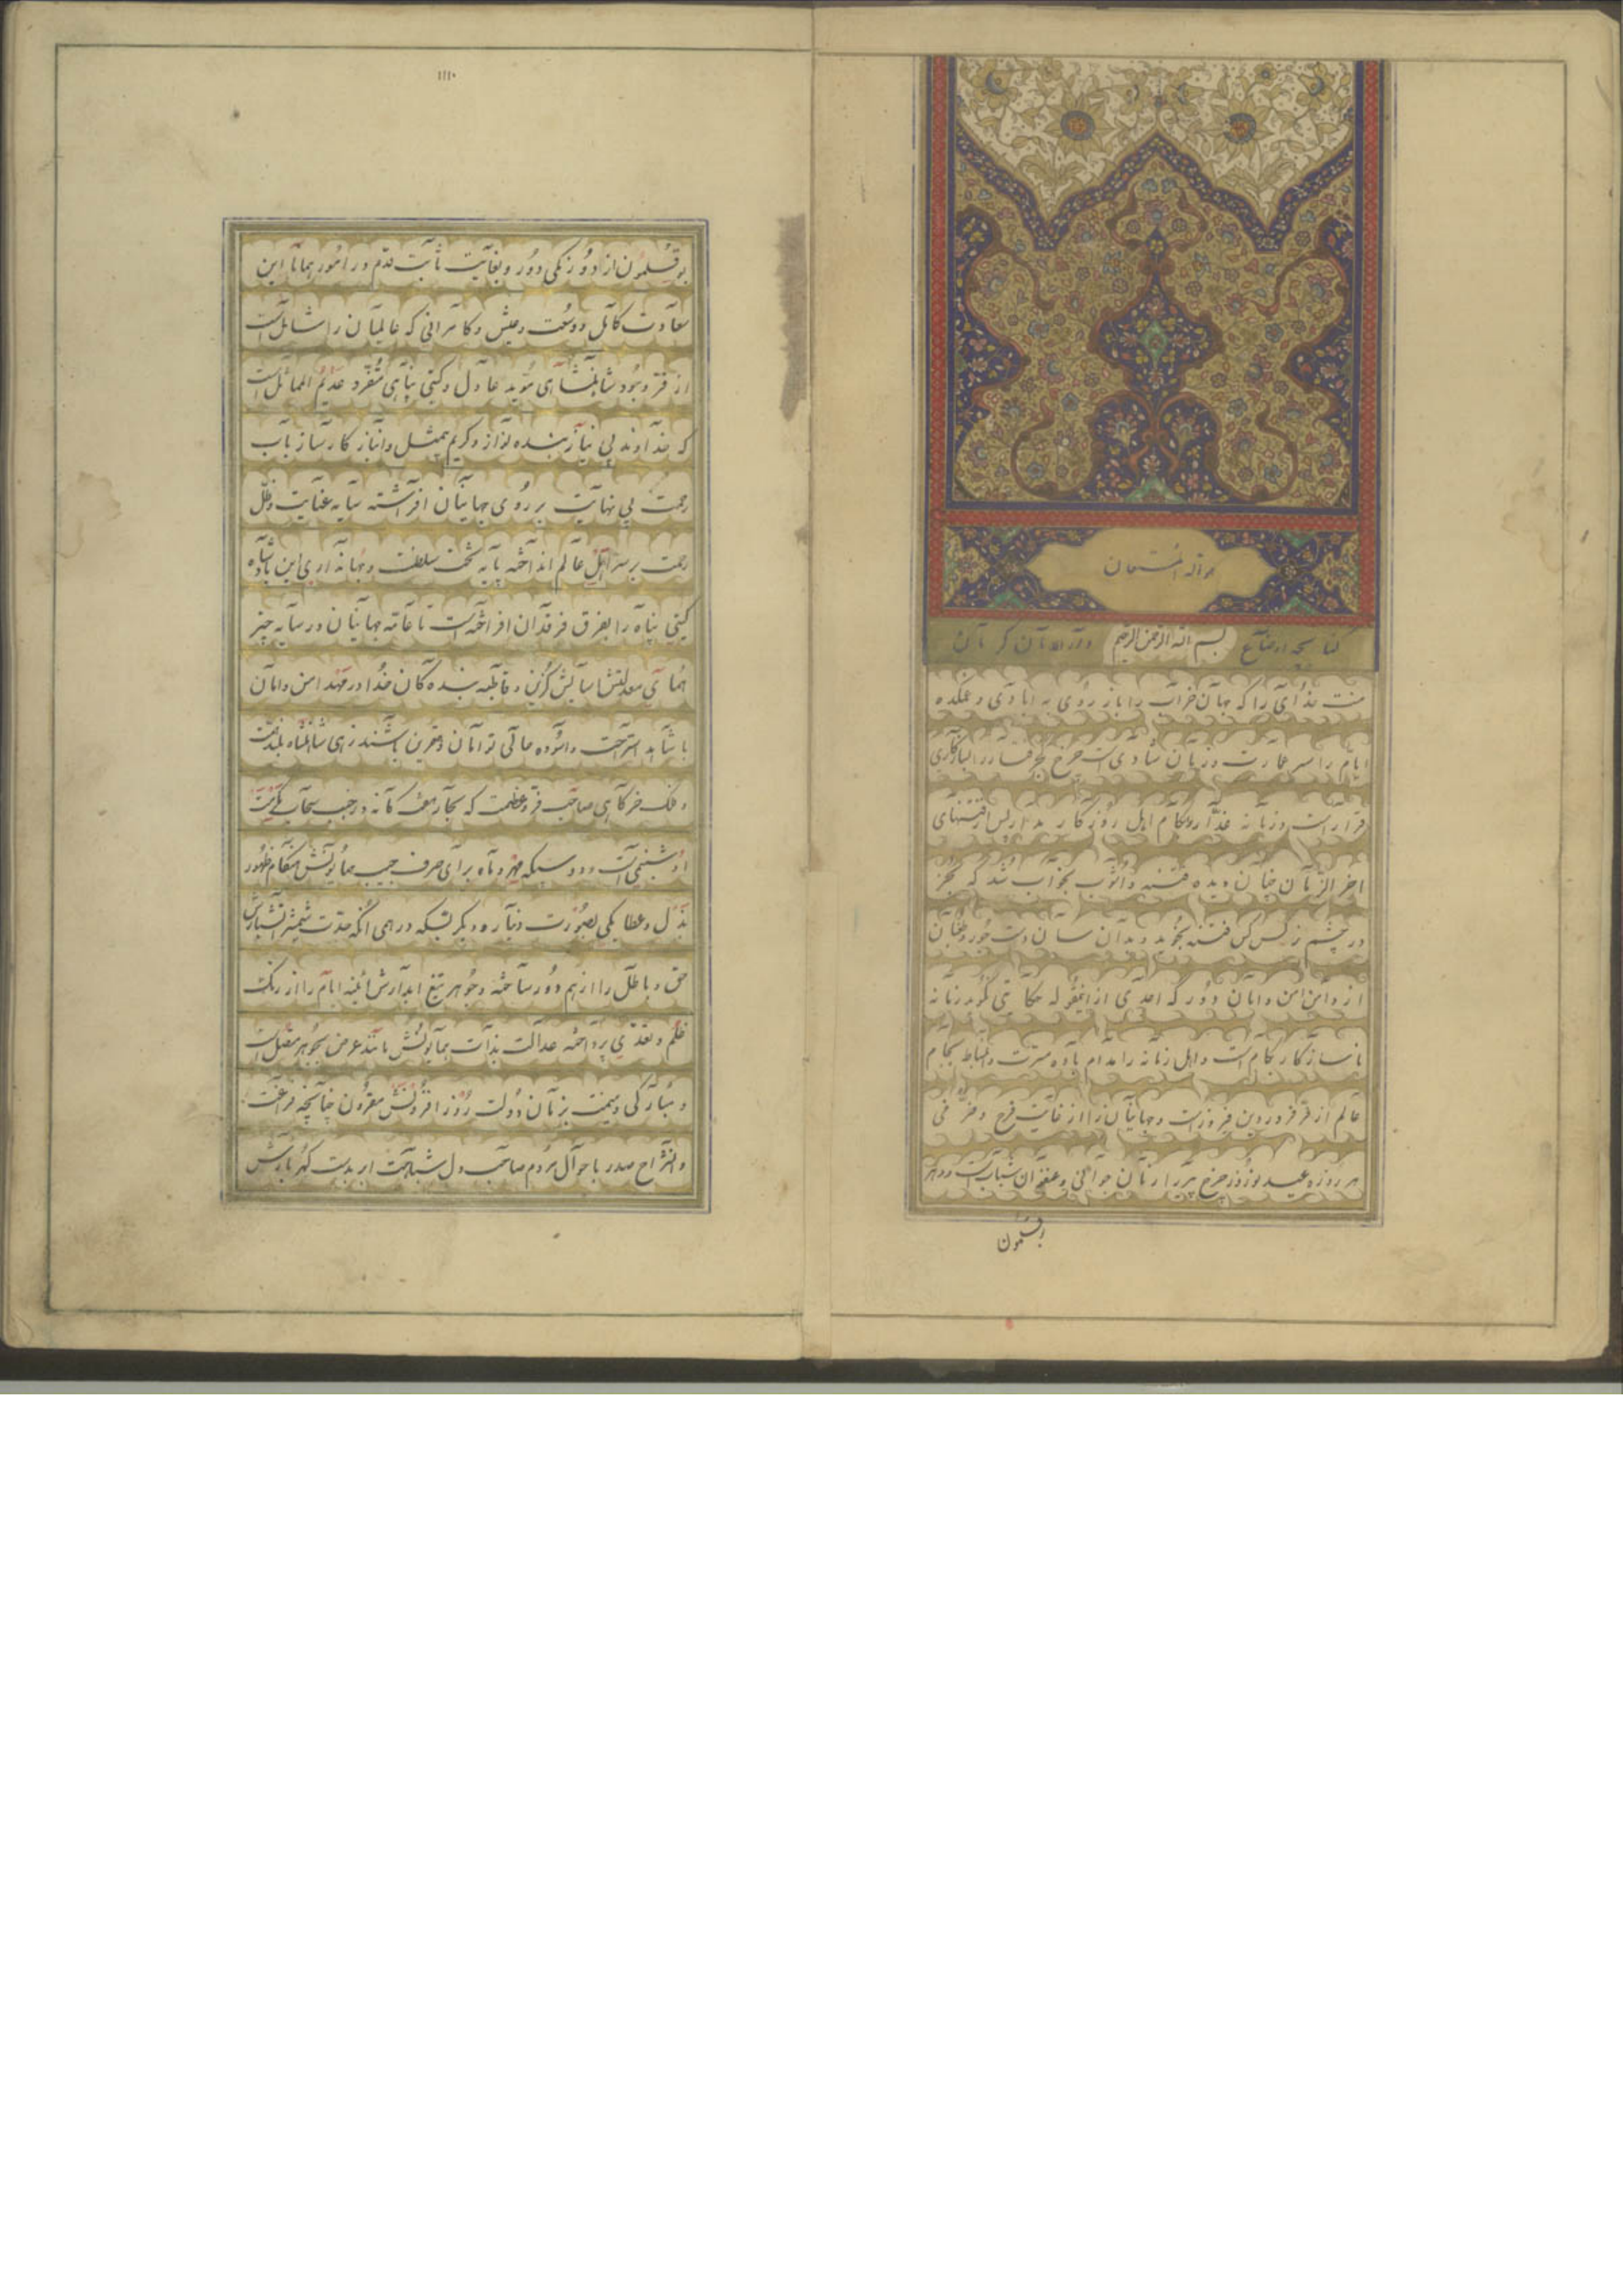 هو الله المستعان
کتابچه اوضاع بسم الله الرحمن الرحیم و قراء کرمان
منت خدای را که جهان خراب را باز روی به آبادی و غمکده
ایام را سر عمارت و زمان شادی است چرخ کجرفتار را
قرار است و زمانه غدار بکام اهل روزگار
اخر الزمان چنان دیده فتنه و آشوب بخواب شد که بجز
در چشم نرگس کس فتنه نجوید و بدان سان دست جور و طغیان
از دامن امن و امان دور که احدی از آنمقوله حکایتی نگوید زمانه
ناسازگار بکام است و اهل زمانه را مدام باده مسرت و انبساط بجام
عالم از فر فروردین فیروز است و جهانیان را از غایت فرح و خرمی
هر روزه عید نوروز چرخ پیر را زمان جوانی و عنفوان شباب است و دهر
بوقلمون
۱۱۱۰
بوقلمون از دو رنگی دور و بغایت ثابت قدم در امور همانا این
سعادت کامل و وسعت و عیش و کامرانی که عالمیان را شامل است
از فر وجود شاهنشاهی موید عادل و گیتی پناهی متفرد عدیم المماثل است
که خداوند بی نیاز بنده نواز و کریم بیمثل و انباز کارساز باب
رحمت بی نهایت بر روی جهانیان افراشته سایه عنایت و ظل
رحمت بر سر اهل عالم انداخته پایه تخت سلطنت و جهانداری این پادشاه
گیتی پناه را بفرق فرقدان افراخته است تا عامه جهانیان در سایه چتر
همای معدلتش آسایش گزین و قاطبه بنده کان خدا در مهد امن و امان
با شاهد استراحت و آسوده حالی توامان و قرین باشند زهی شاهنشاه بلند همت
و فلک خرگاهی صاحب فر و عظمت که بحار در جنب سحاب مکرمت
او شبنمی است و دو سکه مهر و ماه برای صرف جیب همایونش هنگام ظهور
بذل و عطا یکی بصورت دینار و دیگر بسکه درهمی آنکه حدت شمشیر آتشبارش
حق و باطل را از هم دور ساخته و جوهر تیغ آبدارش آئینه ایام را از زنگ
ظلم و تعدی پرداخته عدالت بذات همایونش مانند عرض بجوهر متصل است
و مبارکی و میمنت بزمان دولت روز افزونش مقرون چنانچه فراغت
و انشراح صدر باحوال مردم صاحب دل شباهت ابر بدست گهربارش